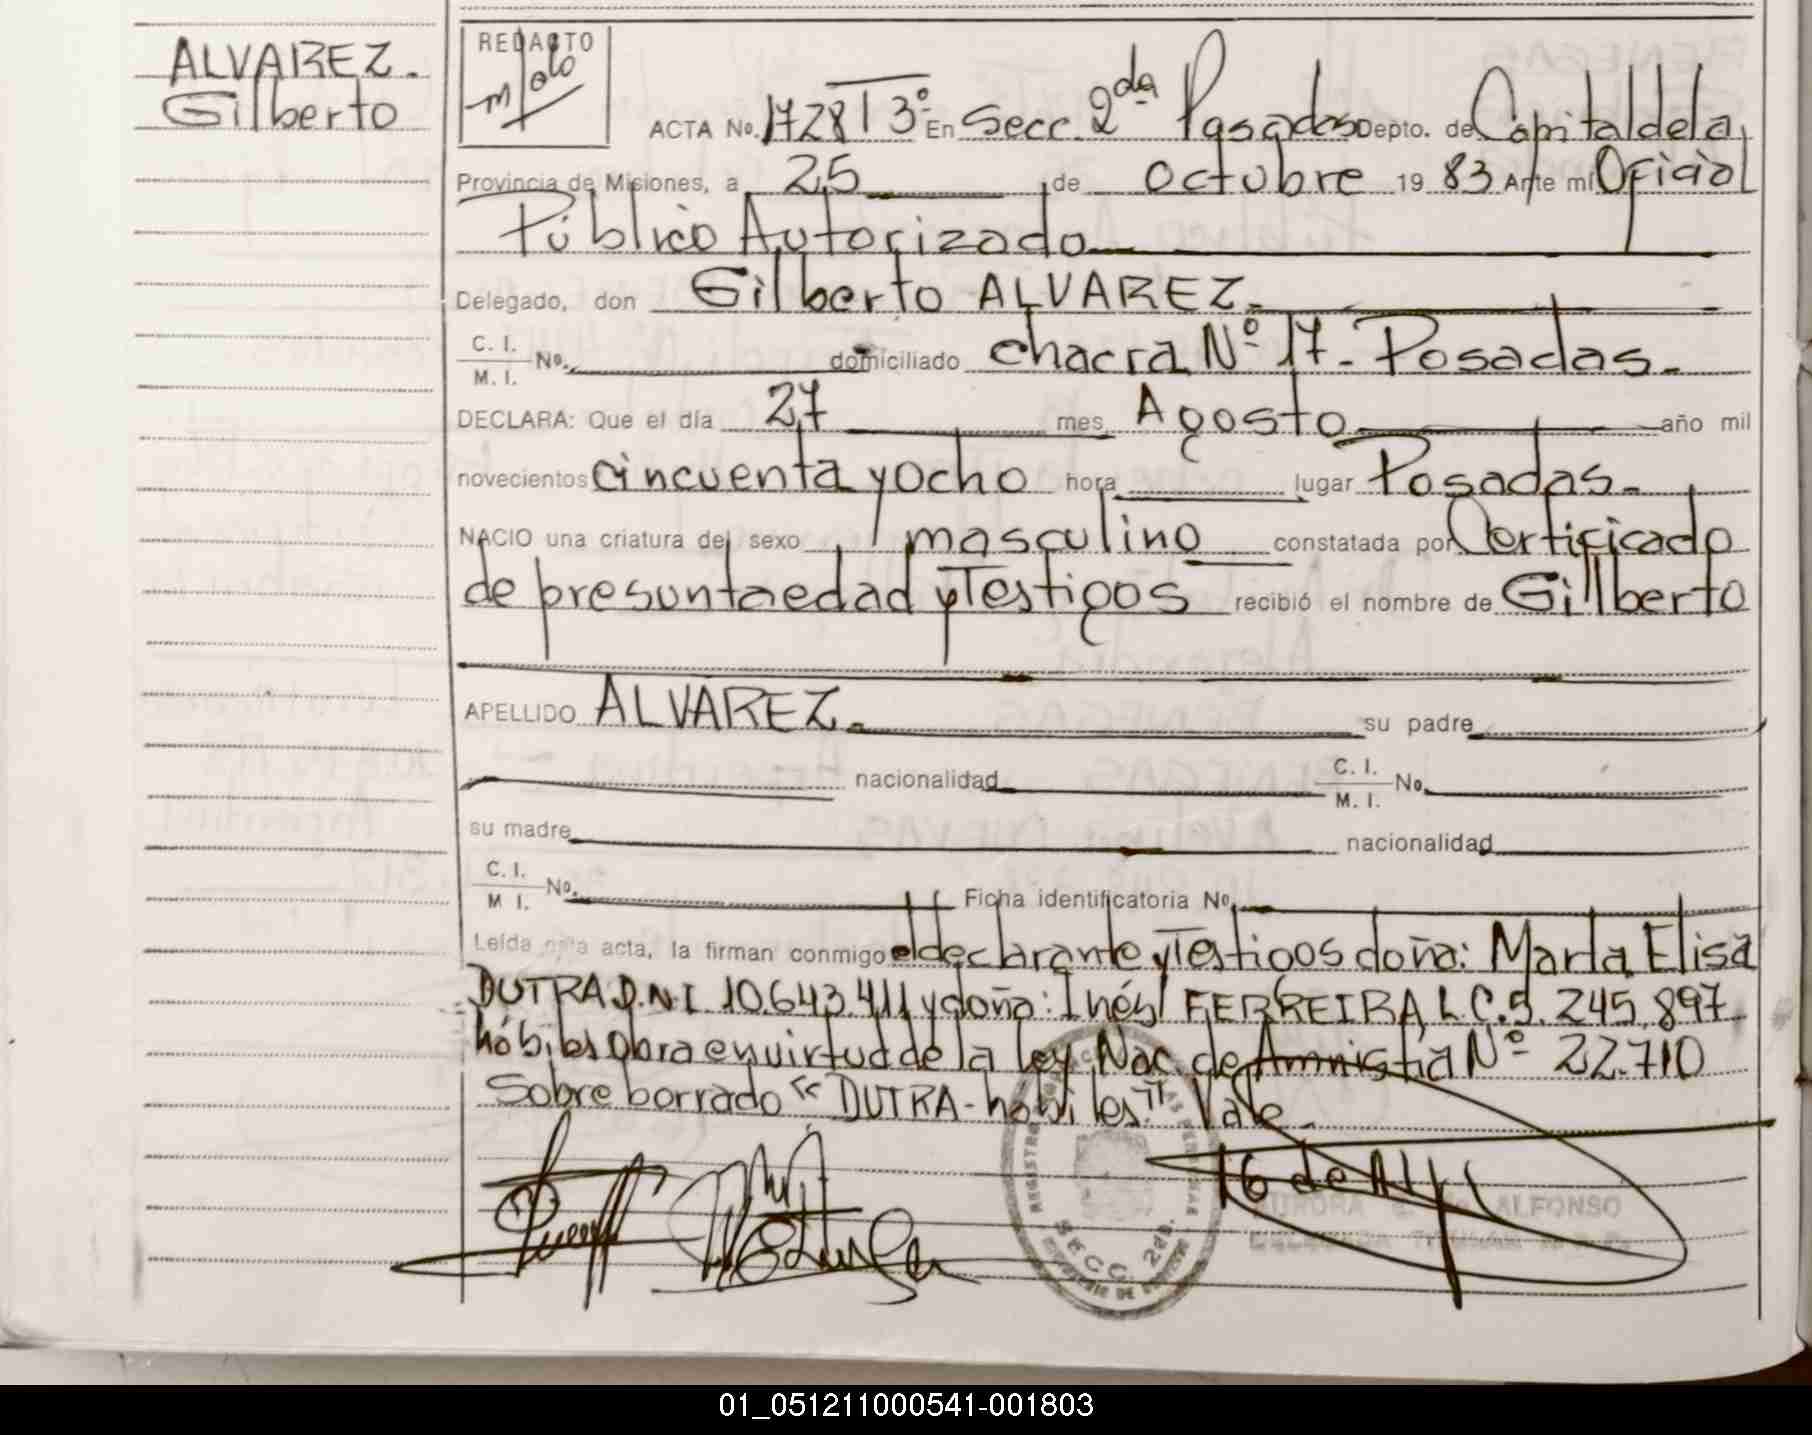 ALVAREZ.
Gilberto
REDACTO
ACTA No. 1728 T 3º En Secc. 2da Posadas Depto. de Capital de la
Provincia de Misiones, a 25 de Octubre 19 83 Ante mí Oficial
Público Autorizado
Delegado, don Gilberto ALVAREZ.
C. I.
M. I. No. domiciliado chacra Nº 17 - Posadas.
DECLARA: Que el día 27 mes Agosto año mil
novecientos cincuenta y ocho hora lugar Posadas.
NACIO una criatura del sexo masculino constatada por Certificado
de presunta edad y Testigos recibió el nombre de Gilberto
APELLIDO ALVAREZ. su padre
nacionalidad C. I. M. I. No.
su madre nacionalidad
C. I. M I. No. Ficha identificatoria No.
Leída esta acta, la firman conmigo el declarante y Testigos doña: María Elisa
DUTRA D.N.I 10.643.411 y doña: Inés FERREIRA L.C. 5.245.897
hábiles Obra en virtud de la ley Nac. de Amnistía Nº 22.710
Sobre borrado "DUTRA - hábiles" Vale.
REGISTRO
SECC. 2da.
AURORA ALFONSO
01_051211000541-001803